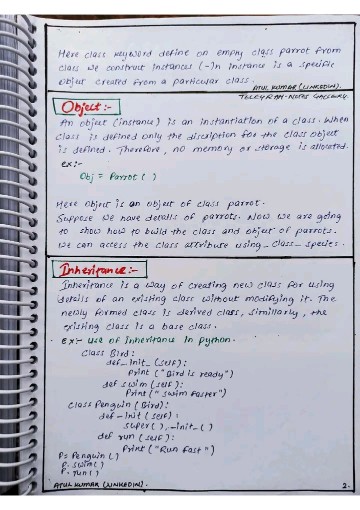 Here class keyword define an empty class parrot from
class we construct instances (-)n instance is a specific
object created from a particular class.
ATUL KUMAR (LINKEDIN).
TELEGRAM-NOTES GALLERY.
Object:-
An object (instance) is an instantiation of a class. When
class is defined only the discription for the class object
is defined. Therefore, no memory or storage is allocated.
ex:-
Obj = Parrot ( )
Here object is an object of class parrot.
Suppose we have details of parrots. Now we are going
to show how to build the class and object of parrots.
We can access the class attribute using _class_ species.
Inheritance:-
Inheritance is a way of creating new class for using
details of an existing class without modifying it. The
newly formed class is derived class, similarly, the
existing class is a base class.
Ex:- use of inheritance in python.
class Bird:
def _init_ (self):
Print ("Bird is ready")
def swim (self):
Print (" swim faster")
class Penguin (Bird):
def -init (self) :
super( ), -init-( )
def run (self):
Print ("Run fast")
P= Penguin ( )
P. swim( )
P. run( )
ATUL KUMAR (LINKEDIN). 2.